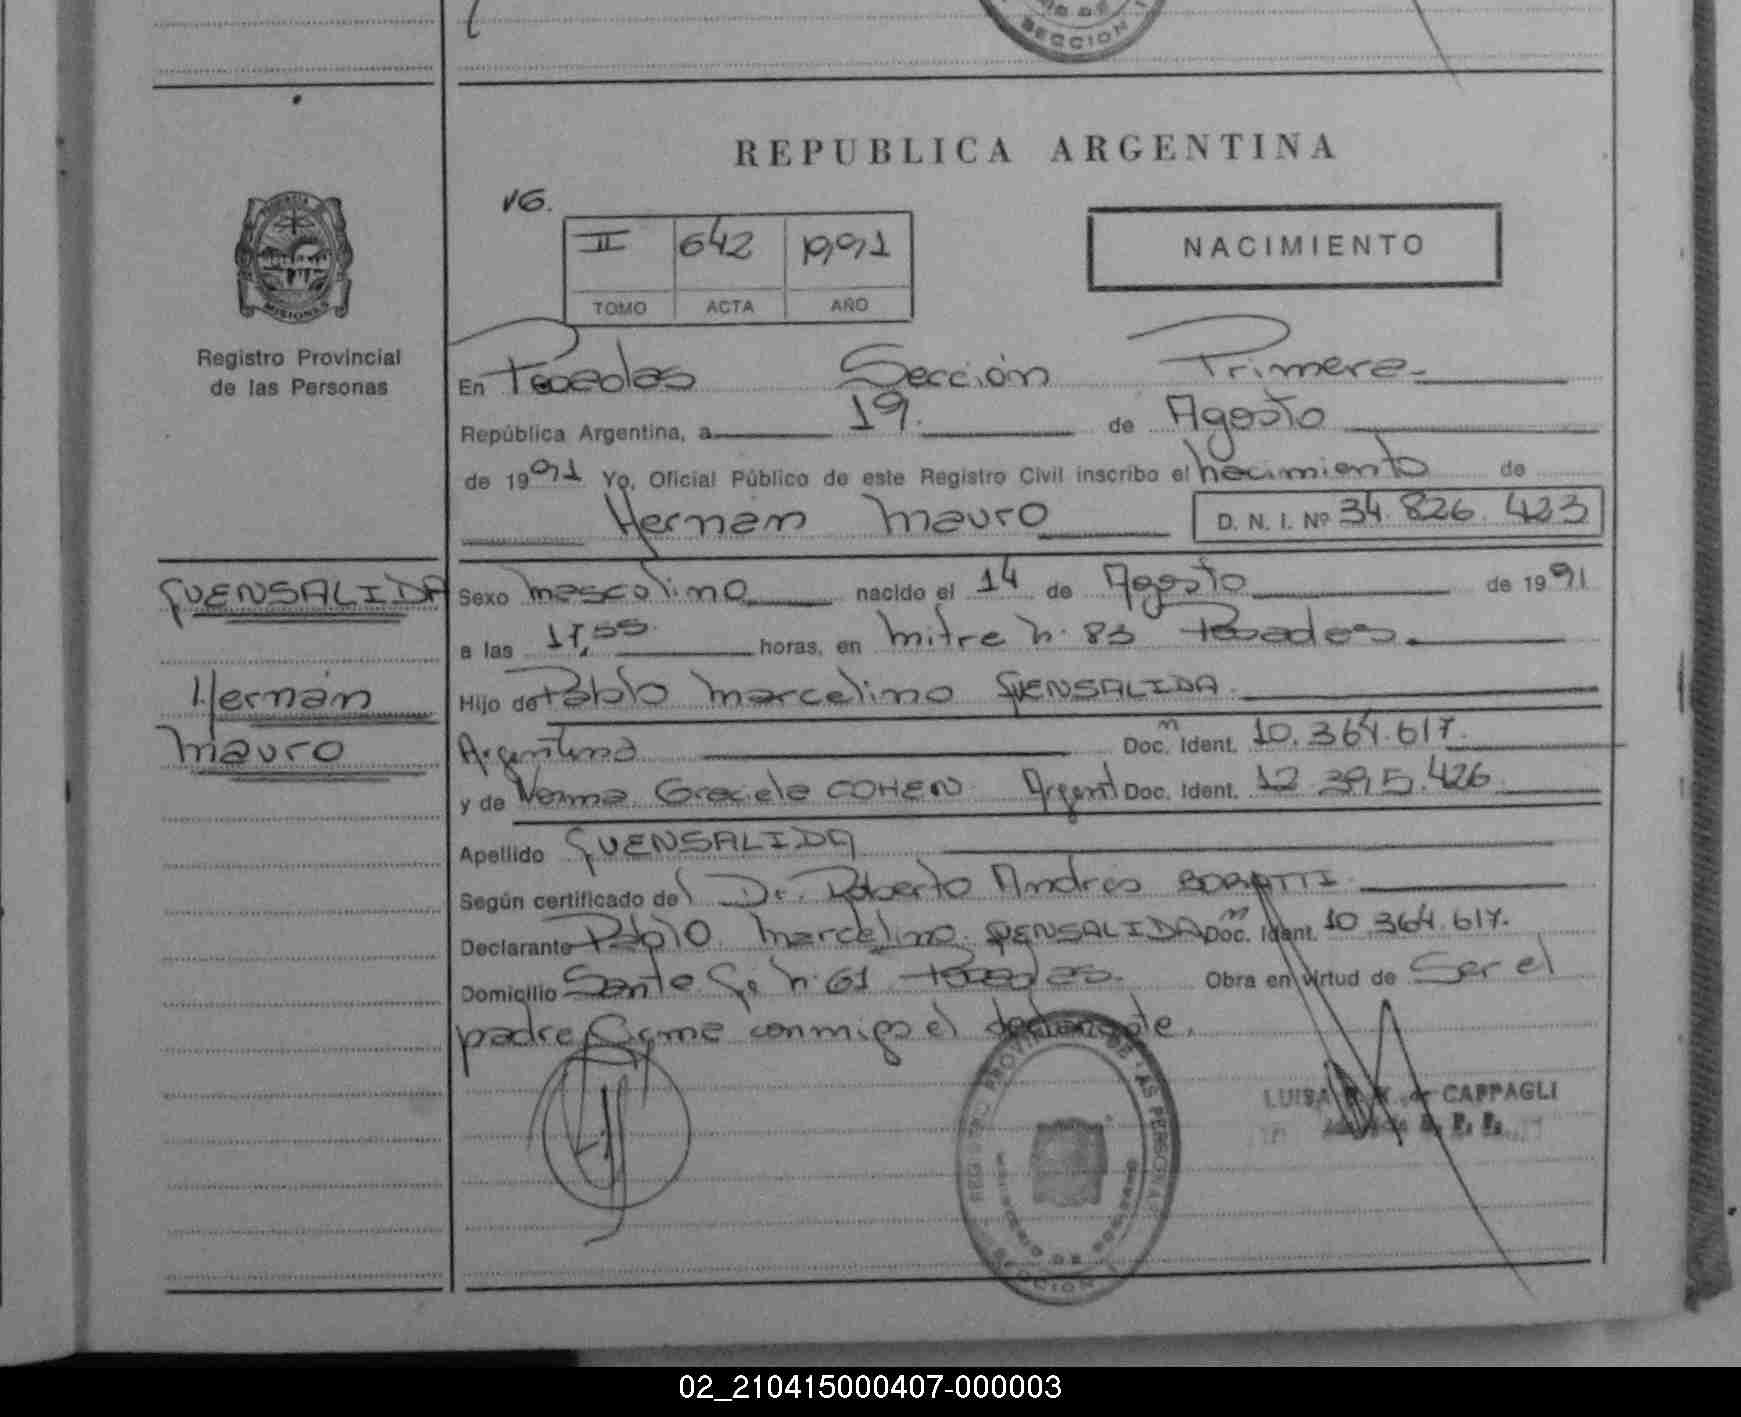 SECCION
REPUBLICA ARGENTINA
16.
II 642 1991
TOMO ACTA AÑO
NACIMIENTO
MISIONES
Registro Provincial
de las Personas
En Posadas Sección Primera
República Argentina, a 19 de Agosto
de 1991 Yo, Oficial Público de este Registro Civil inscribo el nacimiento de
Hernan Mauro D. N. I. Nº 34.826.423
QUENSALIDA
Hernán
Mauro
Sexo masculino nacido el 14 de Agosto de 1991
a las 17,55 horas, en mitre n. 83 Posadas.
Hijo de Pablo Marcelino QUENSALIDA
Argentino Doc. Ident. 10.364.617.
y de Norma Graciela COHEN Argent Doc. Ident. 12.395.426
Apellido QUENSALIDA
Según certificado del Dr. Roberto Andres BORATTI
Declarante Pablo Marcelino QUENSALIDA Doc. Ident. 10.364.617.
Domicilio Santa Fe n. 61 Posadas. Obra en virtud de Ser el
padre Firma conmigo el declarante.
REGISTRO PROVINCIAL DE LAS PERSONAS
MINISTERIO DE GOBIERNO
SECCION
LUISA CAPPAGLI
02_210415000407-000003